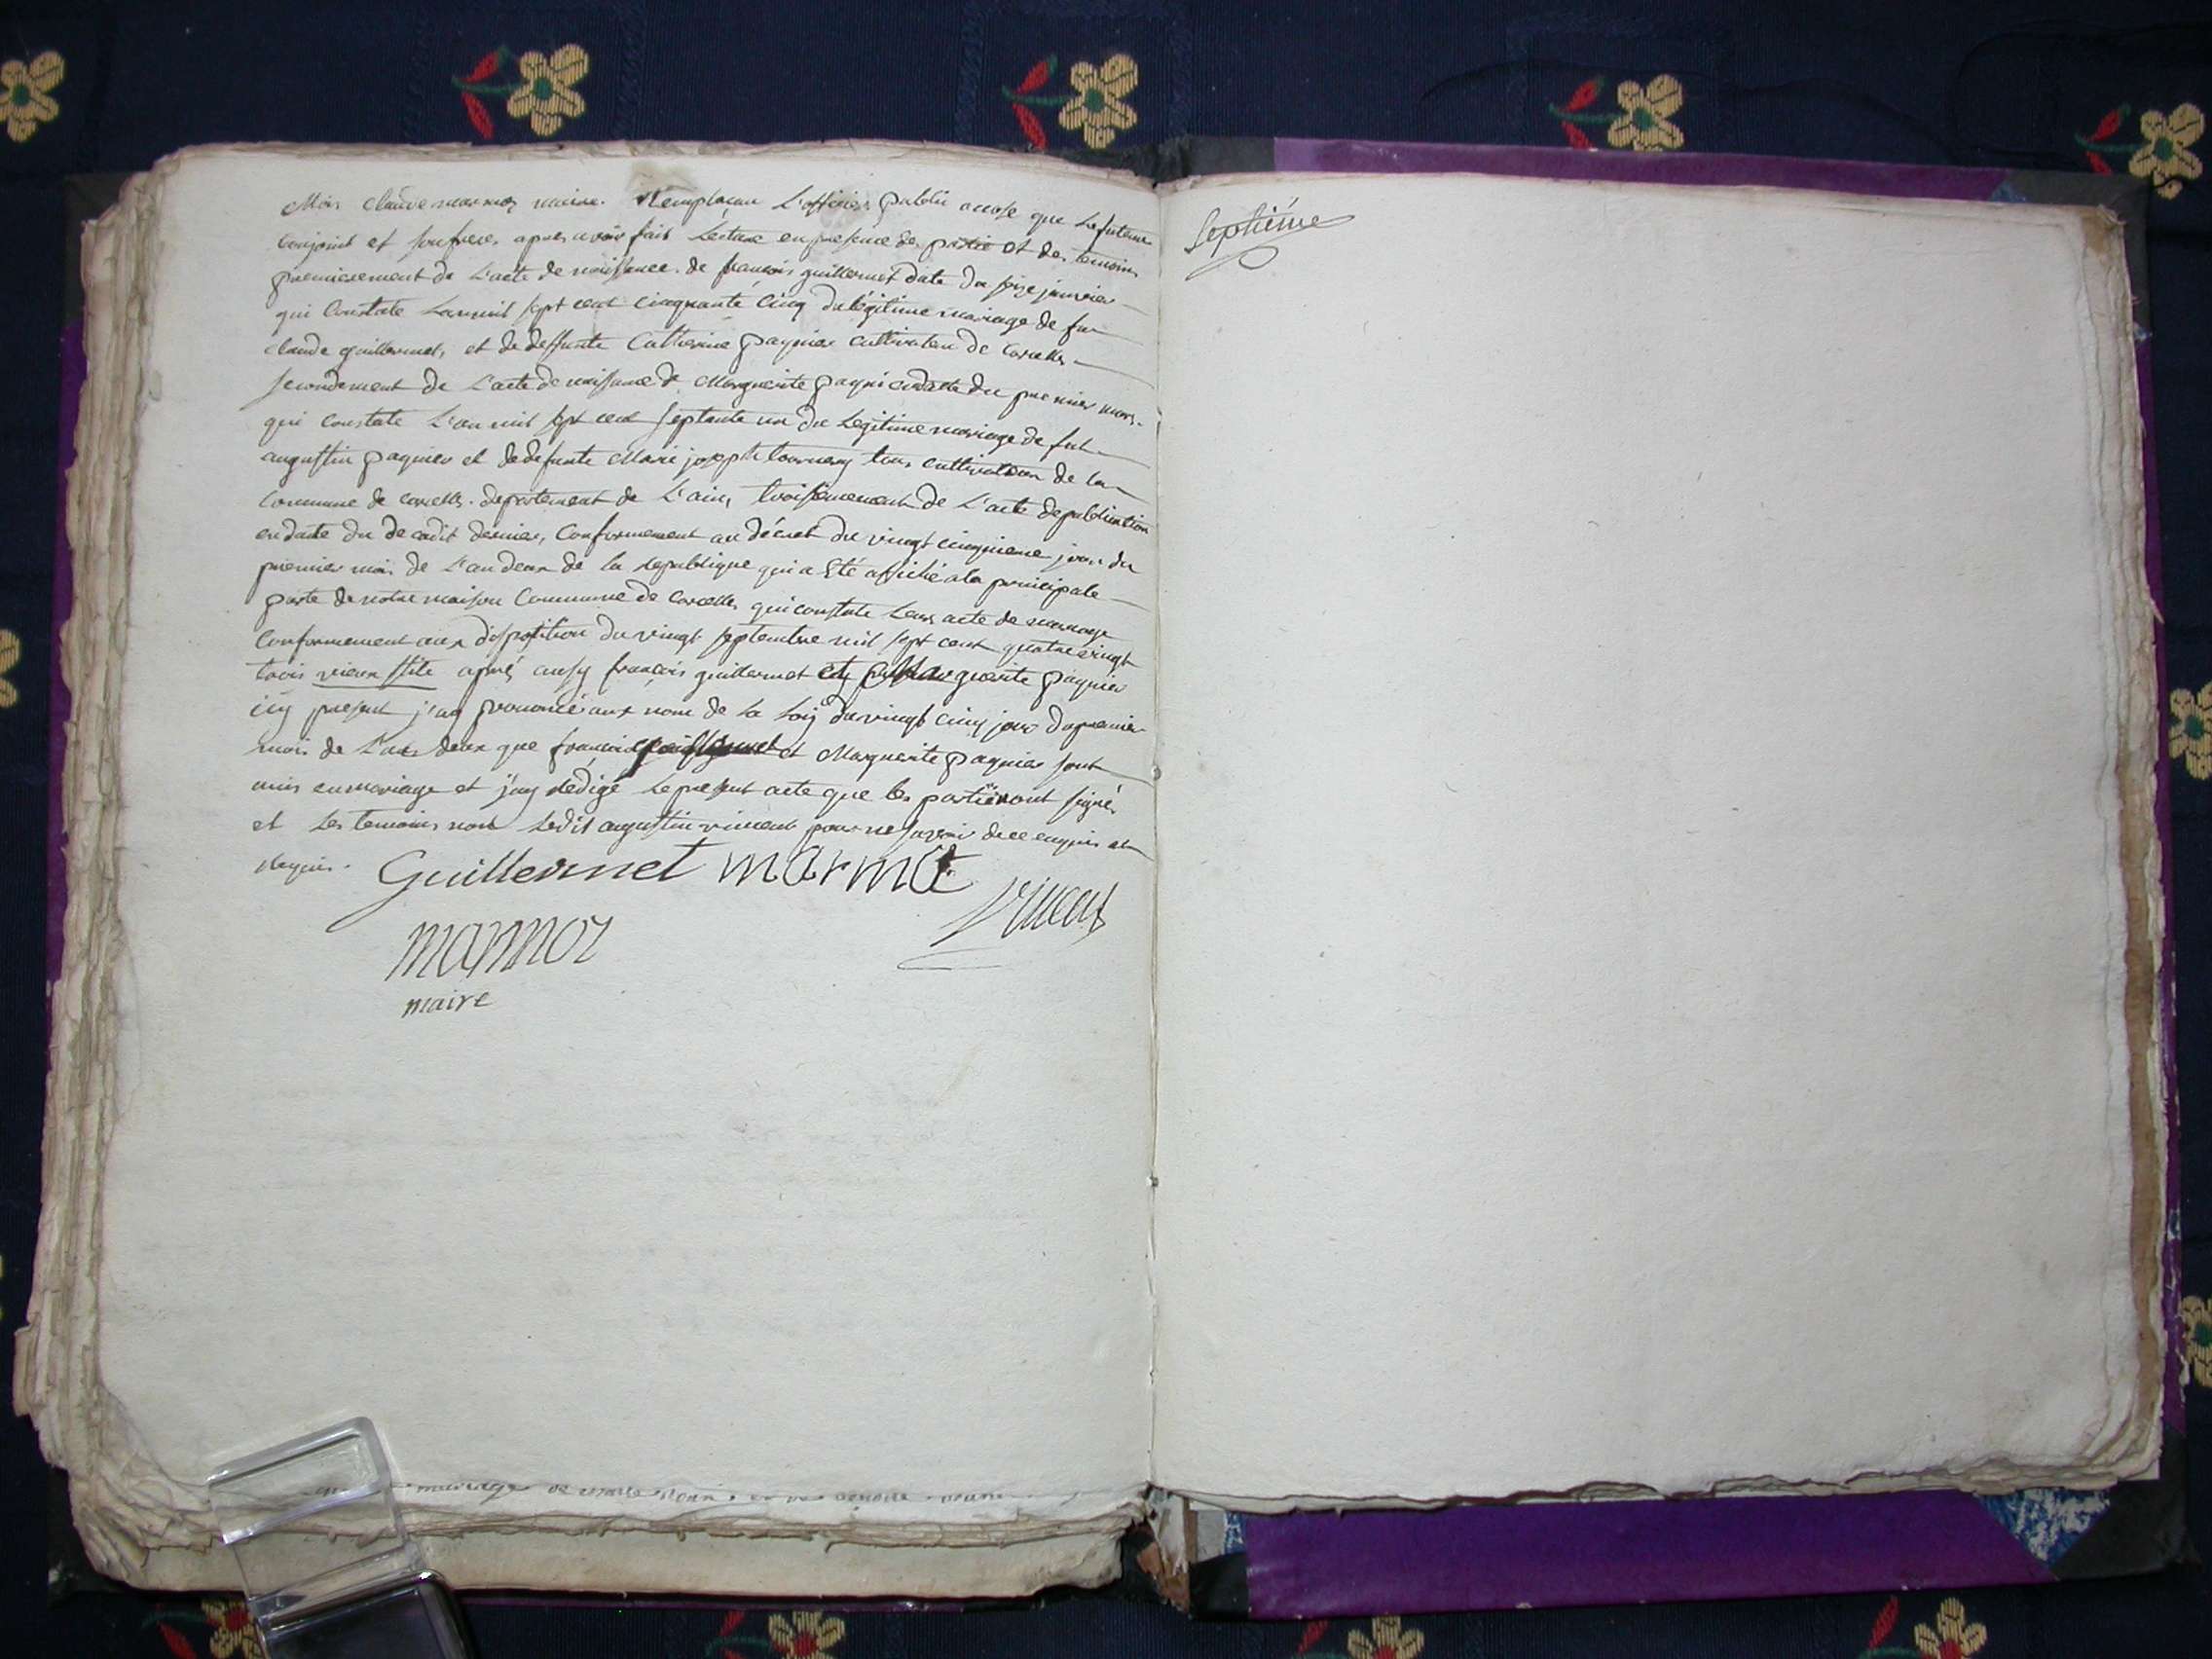 Moi Claude marmoz maire. Remplacan L'officier public a cose que le futeure
conjoint et son frere, apres avoir fait Lecture en presence des partie et des temoins
premierement de L'acte de naissance de francois guillermet date du seize janvier
qui Constate Lan mil sept cent cinquante cinq du légitime mariage de fu
claude guillermet, et de deffunte Catherine pagnier cultivateur de Corcelles
secondement de L'acte de naissance de Marguerite pagni en datte du premier mars
qui constate L'an mil sept cent septante un du Legitime mariage de fut
augustin pagnier et de defunte Marie joseph tous cultivateur de la
commune de corcelles. departement de L'ain, troisiemement de L'acte de publication
en date du decadit dernier, Conformement au décret du vingt cinquieme jour du
premier mois de L'an deux de la republique qui a Eté affiché a la principale
porte de notre maison Commune de Corcelles qui constate Leur acte de mariage
Conformement aux disposition du vingt septembre mil sept cent quatre vingt
trois vieux stile apres ausy francois guillermet et Marguerite pagnier
icy present j'ay prononcé aux nom de la Loiy du vingt cinq jour du premier
mois de L'an deux que francois guillermet et Marguerite pagnier sont
unis en mariage et j'ay redigé le present acte que les partie ont signés
et Les temoins non Ledit augustin vincent pour ne savoir de ce enquis et
requis. Guillermet marmo Vincent
marmoz
maire
Septiéme
mariage